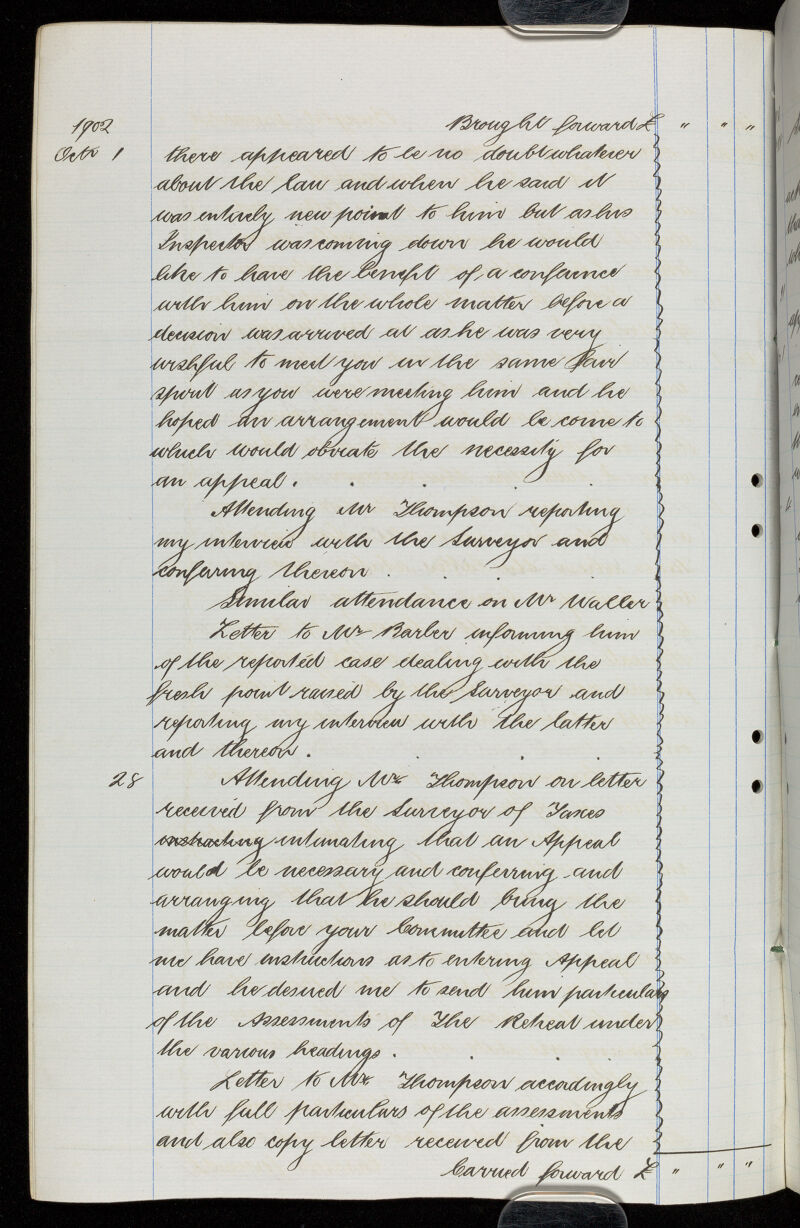 1902 Brought forward £ " " "
Octr 1 there appeared to be no doubt whatever
about the law and when he said it
was entirely new point to him but as his
Inspector was coming down he would
like to have the benefit of a conference
with him on the whole matter before a
decision was arrived at as he was very
wishful to meet you in the same fair
spirit as you were meeting him and he
hoped an arrangement would be come to
which would obviate the necessity for
an appeal .
Attending Mr Thompson reporting
my interview with the Surveyor and
conferring thereon .
Similar attendance on Mr Waller
Letter to Mr Barber informing him
of the reported case dealing with the
fresh point raised by the Surveyor and
reporting my interview with the latter
and thereon .
28 Attending Mr Thompson on letter
received from the Surveyor of Taxes
instructing intimating that an Appeal
would be necessary and conferring and
arranging that he should bring the
matter before your Committee and let
me have instructions as to entering Appeal
and he desired me to send him particulars
of the Assessments of The Retreat under
the various headings .
Letter to Mr Thompson accordingly
with full particulars of the assessments
and also copy letter received from the
Carried forward £ " " "